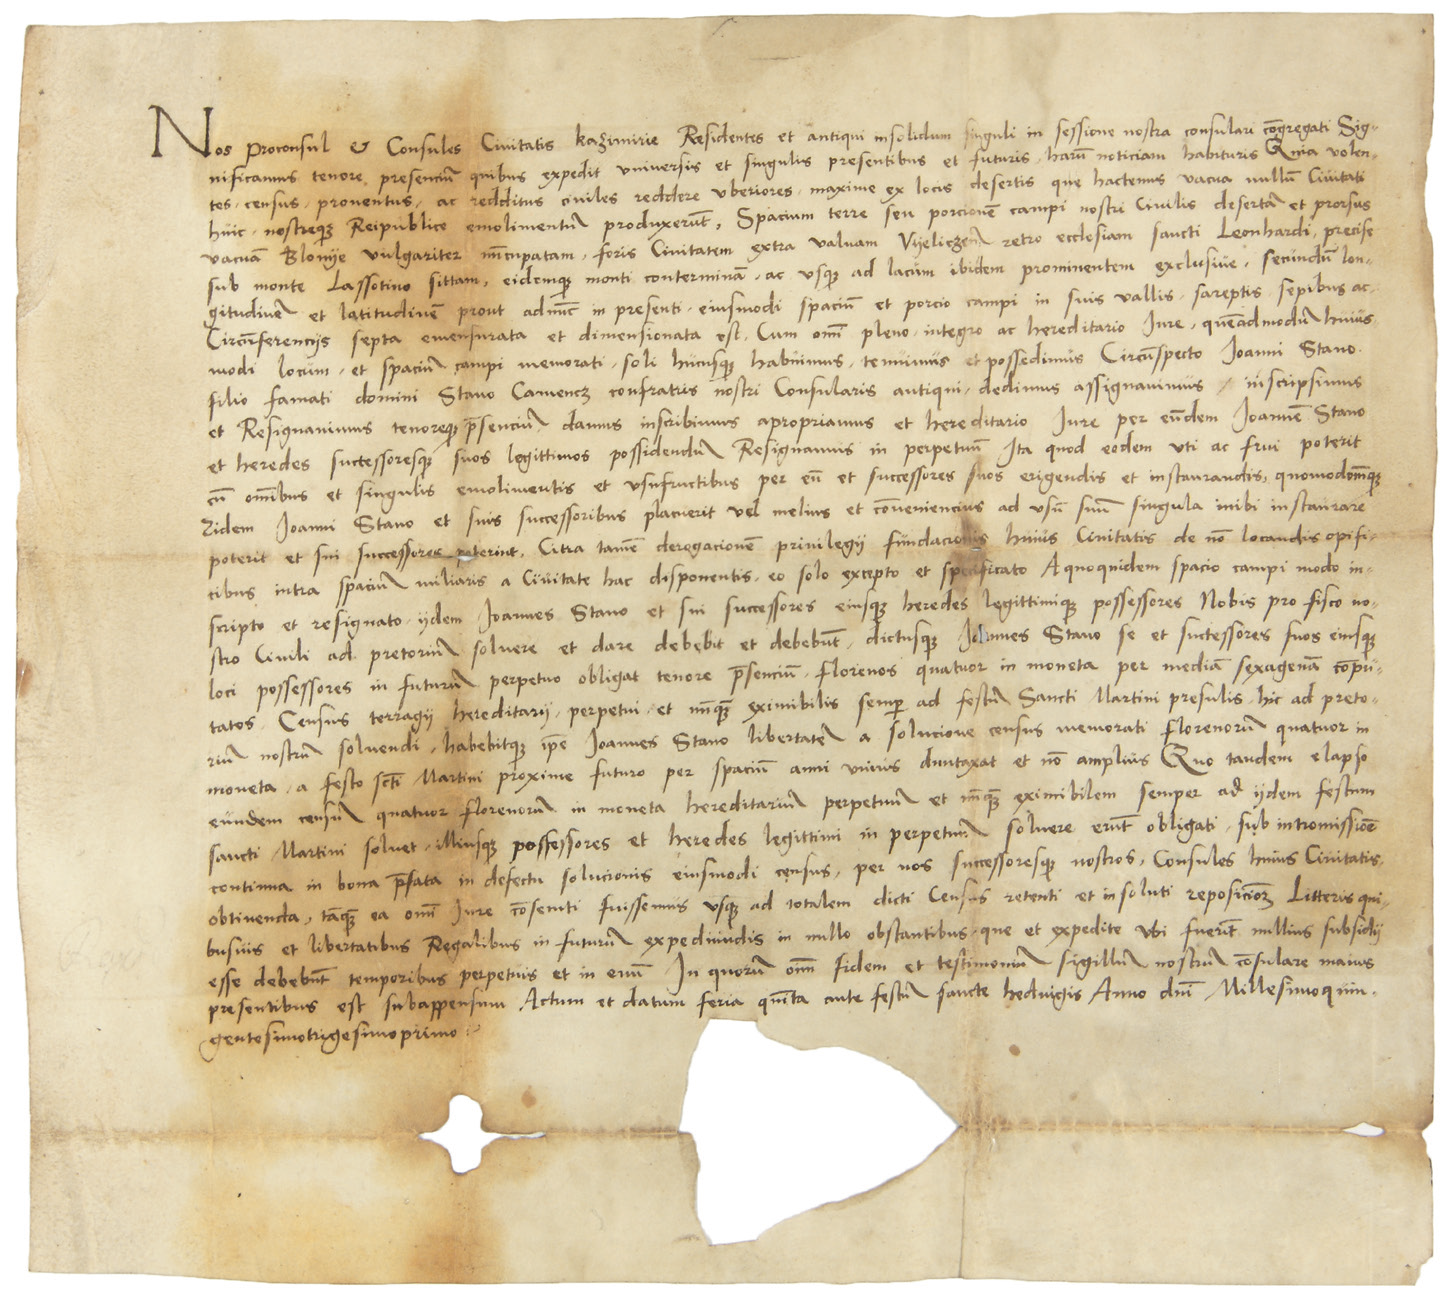 Nos Proconsul & Consules Civitatis Kazimirie Residentes et antiqui insolidum singuli in sessione nostra consulari cōgregati Sig-
nificamus tenore presenciū quibus expedit universis et singulis presentibus et futuris harū noticiam habituris Quia volen-
tes census proventus ac redditus civiles reddere vberiores maxime ex locis desertis que hactenus vacua nullū Civitati
huic nostreque Reipublice emolimentū produxerūt, Spacium terre seu porcionē campi nostri Civilis desertā et prorsus
vacuā Blonye vulgariter nūcupatam foris Civitatem extra valvam Vyeliczeñ retro ecclesiam sancti Leonhardi, precise
sub monte Lassotino sittam, eidemque monti conterminā ac vsque ad lacum ibidem prominentem exclusive, secundū lon-
gitudinē et latitudinē prout adnūc in presenti eiusmodi spaciū et porcio campi in suis vallis sareptis sepibus ac
Circūferencijs septa emensurata et dimensionata est, Cum omī pleno integro ac hereditario Iure, quēadmodū huius
modi locum et spaciū campi memorati soli hucusque habuimus tenuimus et possedimus Circūspecto Ioanni Stano
filio famati domini Stano Camencz confratris nostri Consularis antiqui dedimus assignavimus inscripsimus
et Resignavimus tenoreque p̄senciū damus inscribimus apropriamus et hereditario Iure per eūdem Ioannē Stano
et heredes successoresque suos legittimos possidendū Resignamus in perpetuū Ita quod eodem vti ac frui poterit
cū omībus et singulis emolimentis et vsufructibus per eū et successores suos erigendis et instaurandis, quomodocūque
eidem Ioanni Stano et suis successoribus placuerit vel melius et cōveniencius ad vsū suū singula inibi instaurare
poterit et sui successores poterint, Citra tamē deregacionē privilegij fundacionis huius Civitatis de nō locandis opifi-
cibus intra spaciū miliaris a Civitate hac disponentis, eo solo excepto et specificato A quoquidem spacio campi modo in-
scripto et resignato ijdem Ioannes Stano et sui successores eiusque heredes legittimique possessores Nobis pro fisco no-
stro Civili ad pretoriū solvere et dare debebit et debebūt, dictusque Ioannes Stano se et successores suos eiusque
loci possessores in futurū perpetuo obligat tenore p̄senciū florenos quatuor in moneta per mediā sexagenā cōpu-
tatos Census terragij hereditarij perpetui et nūque eximibilis semper ad festū Sancti Martini presulis hic ad preto-
riū nostrū solvendi, habebitque ip̄e Ioannes Stano libertatē a solucione census memorati florenorū quatuor in
moneta a festo sc̄ti Martini proxime futuro per spaciū anni vnius duntaxat et nō amplius Quo tandem elapso
eundem censū quatuor florenorū in moneta hereditariū perpetuū et nūque eximibilem semper ad ijdem festum
sancti Martini solvet illiusque possessores et heredes legittimi in perpetuū solvere erūt obligati, sub intromissiōe
continua in bona p̄fata in defectu solucionis eiusmodi census, per nos successoresque nostros, Consules huius Civitatis,
obtinenda, tāque ea omī Iure cōsecuti fuissemus vsque ad totalem dicti Census retenti et insoluti reposiciōe Litteris qui-
busvis et libertatibus Regalibus in futurū expediundis in nullo obstantibus que et expedite vbi fuerīt nullius subsidij
esse debebūt temporibus perpetuis et in evū In quorū omī fidem et testimoniū sigillū nostrū cōsulare maius
presentibus est subappensum Actum et datum feria quīta ante festū sancte Hedvigis Anno dnī Millesimoquin-
gentesimotrigesimoprimo